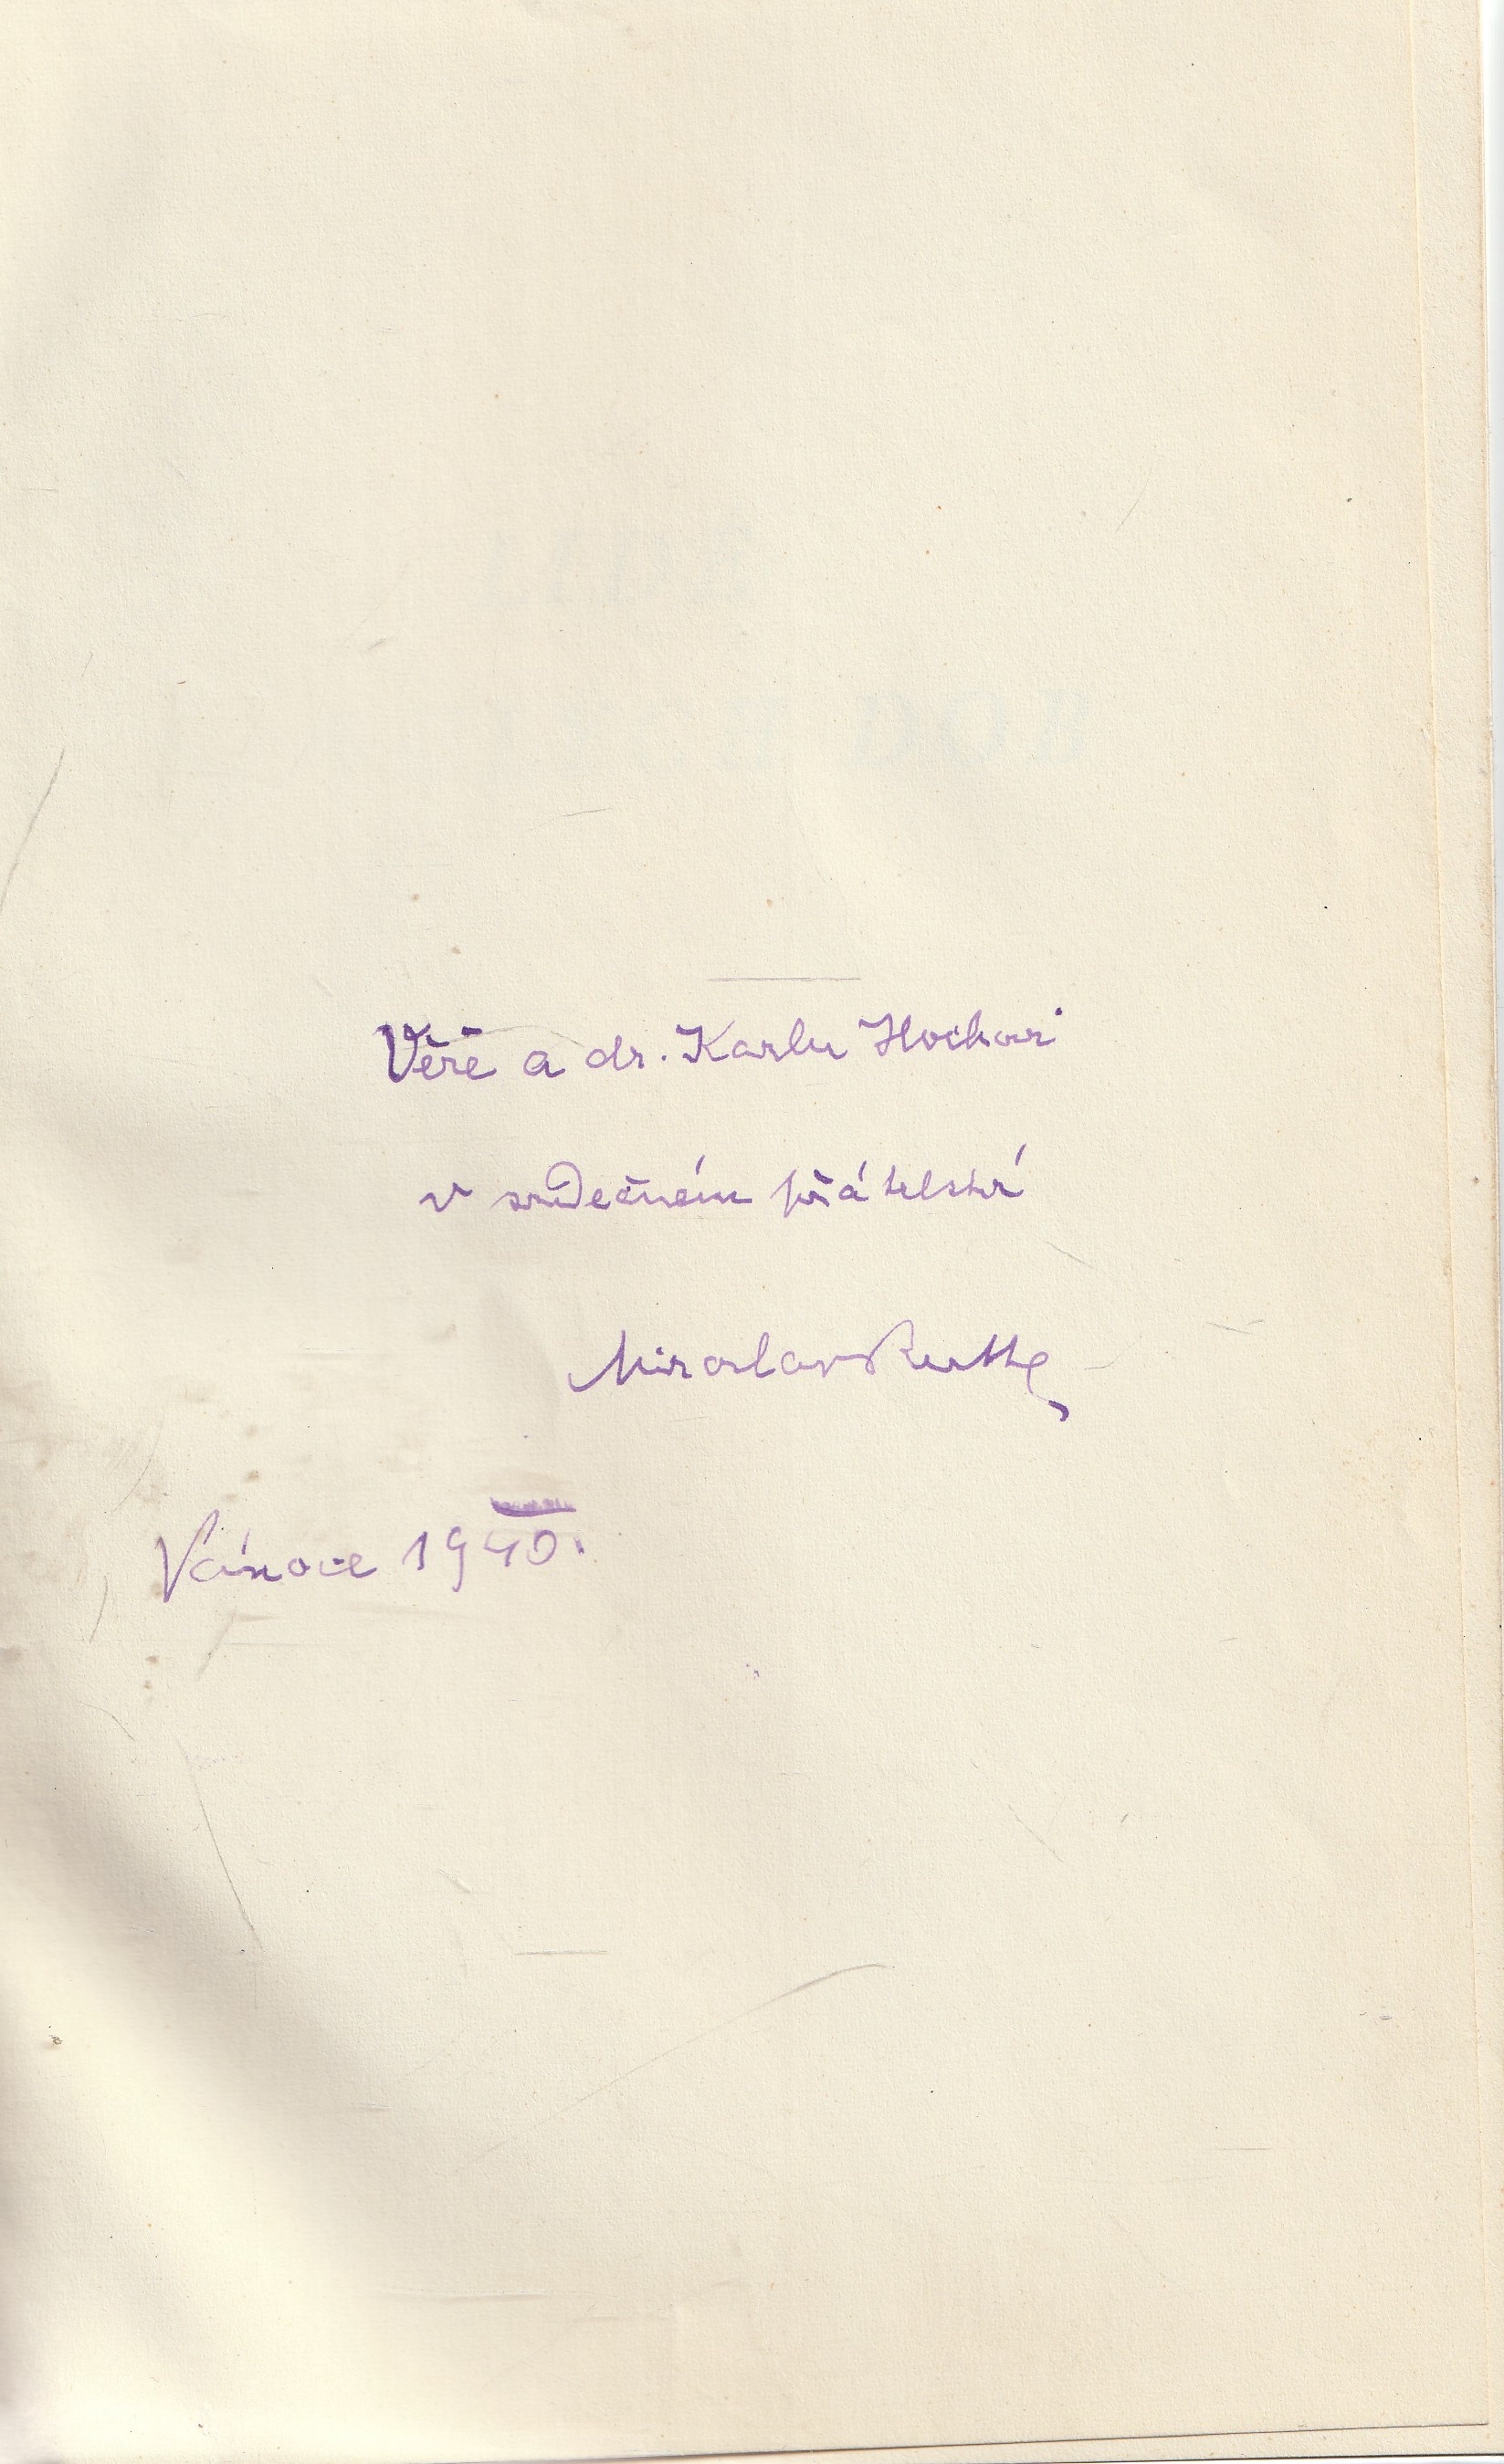 Věře a dr. Karlu
v srdečném přátelství
Miroslav Rutte
Vánoce 1940.